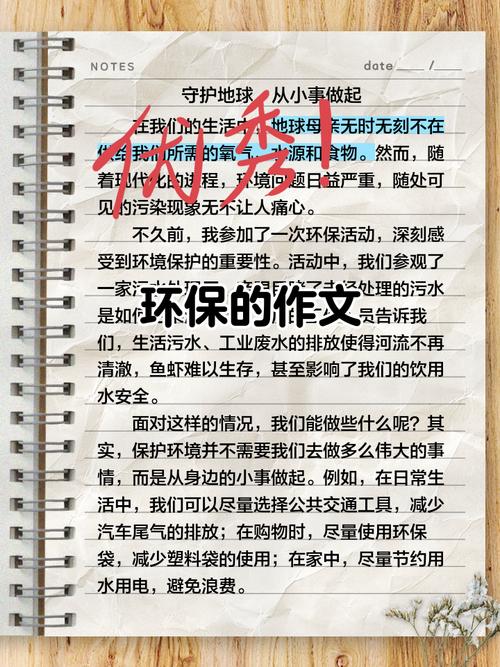 NOTES
date____/__
守护地球，从小事做起
在我们的生活中，地球母亲无时无刻不在
供给我们所需的氧气、水源和食物。然而，随
着现代化的进程，环境问题日益严重，随处可
见的污染现象无不让人痛心。
优秀！
不久前，我参加了一次环保活动，深刻感
受到环境保护的重要性。活动中，我们参观了
一家污水处理 目睹了 处理的污水
环保的作文
是如何 员告诉我
们，生活污水、工业废水的排放使得河流不再
清澈，鱼虾难以生存，甚至影响了我们的饮用
水安全。
面对这样的情况，我们能做些什么呢？其
实，保护环境并不需要我们去做多么伟大的事
情，而是从身边的小事做起。例如，在日常生
活中，我们可以尽量选择公共交通工具，减少
汽车尾气的排放；在购物时，尽量使用环保
袋，减少塑料袋的使用；在家中，尽量节约用
水用电，避免浪费。